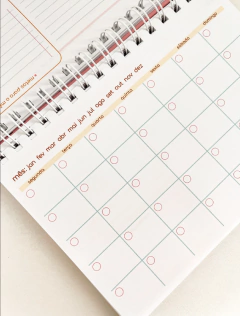 mês: jan fev mar abr mai jun jul ago set out nov dez
segunda terça quarta quinta sexta sábado domingo